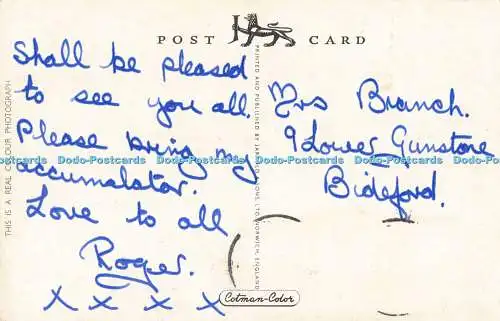 POST CARD
Shall be pleased
to see you all.
Please bring my
accumalator.
Love to all
Roger.
x x x x
Mrs Branch.
9 Lower Gunstone
Bideford.
THIS IS A REAL COLOUR PHOTOGRAPH
PRINTED AND PUBLISHED BY JARROLD & SONS, LTD, NORWICH, ENGLAND
Cotman-Color
Dodo-Postcards Dodo-Postcards Dodo-Postcards Dodo-Postcards Dodo-Postcards Dodo-Postcards